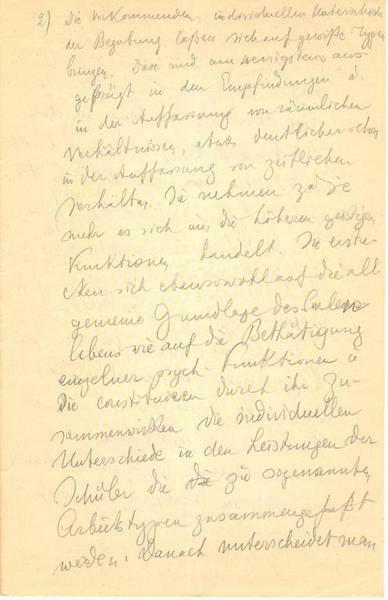 2) Die vorkommenden individuellen Unterschiede
der Begabung laßen sich auf gewiße Typen
bringen. Diese sind am wenigstens aus-
geprägt in den Empfindungen u.
in der Auffassung von räumlichen
Verhältnissen, etwas deutlicher schon
in der Auffassung von zeitlichen
Verhältn. Sie nehmen zu je
mehr es sich um die höheren geistigen
Funktionen handelt. Sie erstre-
cken sich ebensowohl auf die all
gemeine Grundlage des Seelen
lebens wie auf die Bethätigung
einzelner psych. Funktionen u
die constituieren durch ihr Zu-
sammenwirken die individuellen
Unterschiede in den Leistungen der
Schüler die die zu sogenannten
Arbeitstypen zusammengefaßt
werden. Danach unterscheidet man